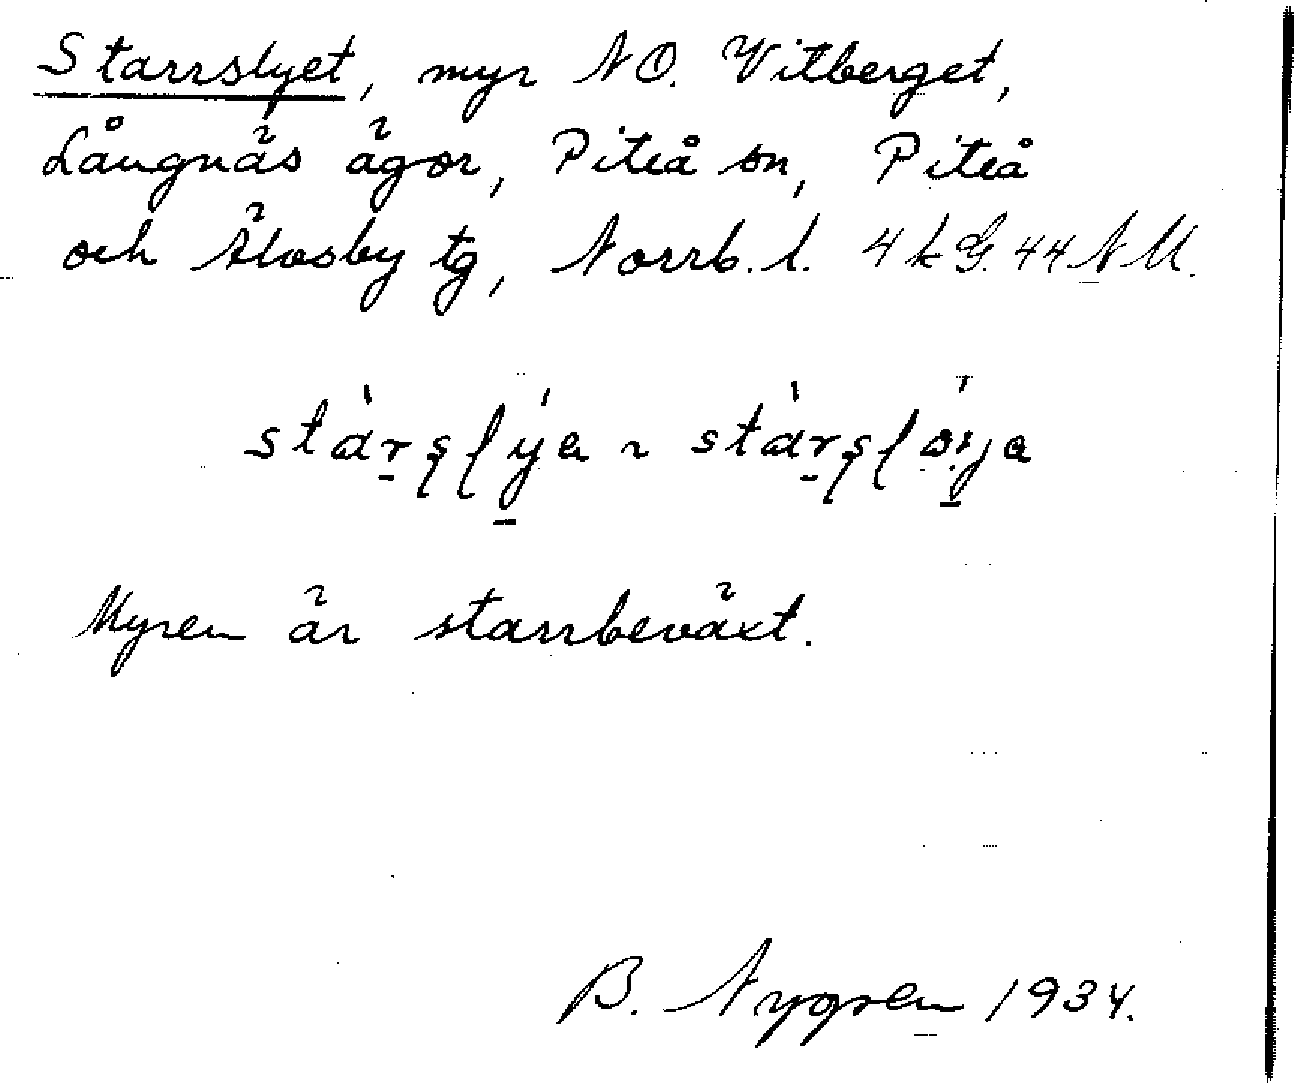 Starrslyet, myr NO. Vitberget,
Långnäs ägor, Piteå sn, Piteå
och Älvsby tg, Norrb. l. 4 k G. 44 N M.
Myren är starrbeväxt.
B. Nygren 1934.